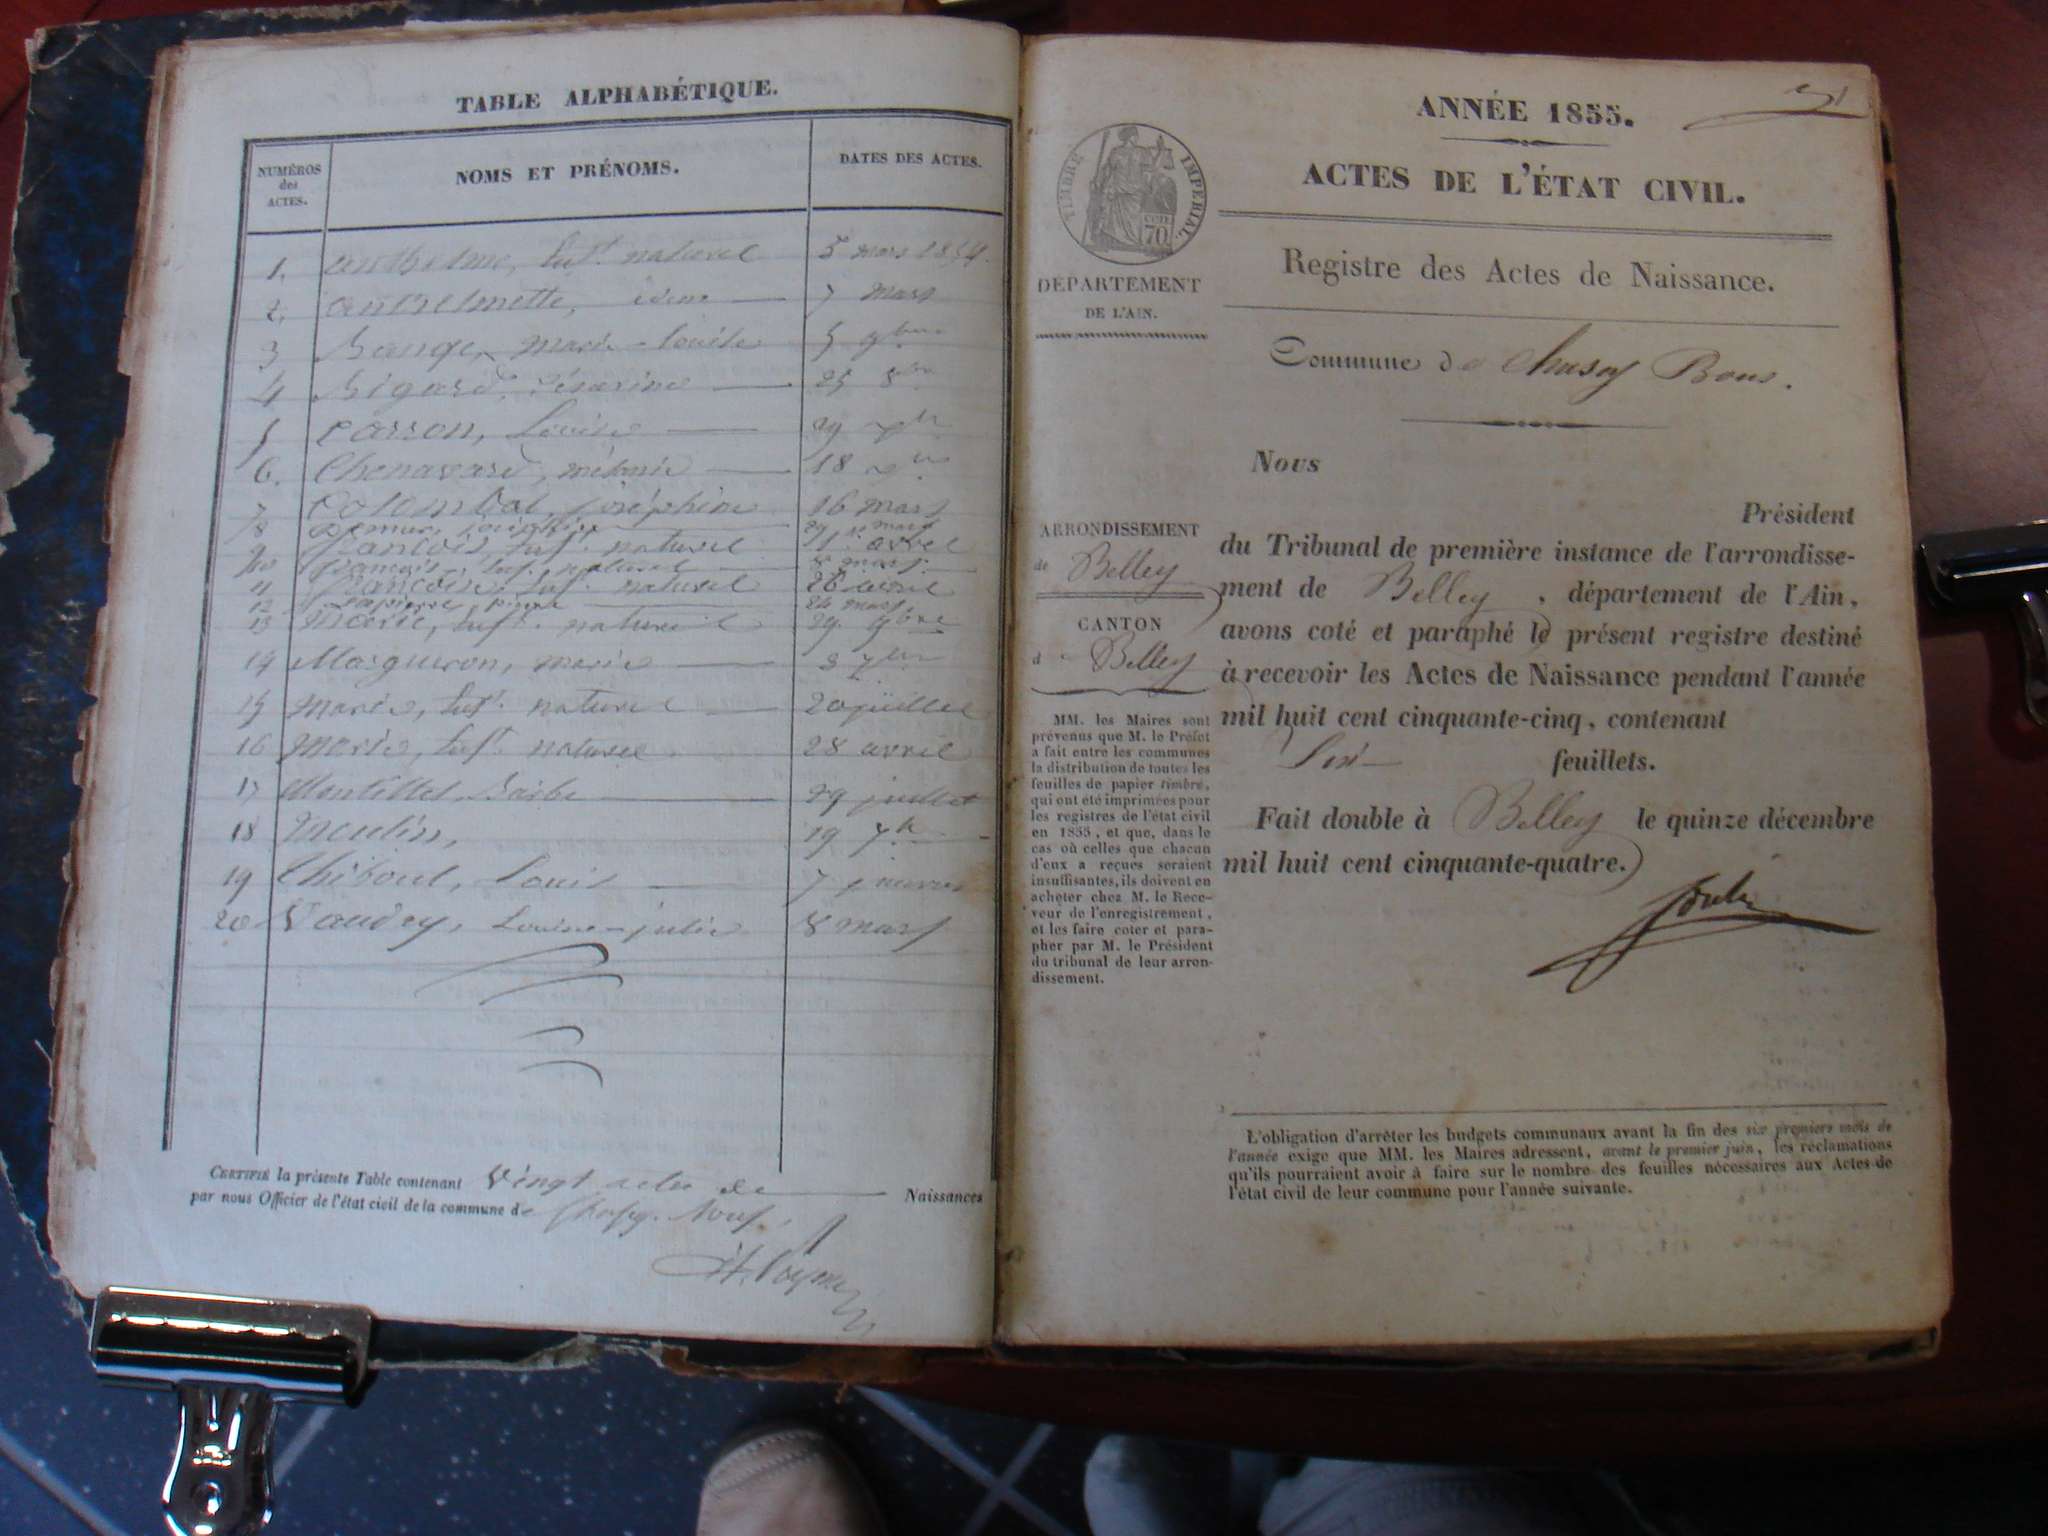 TABLE ALPHABÉTIQUE.
NUMÉROS des ACTES.
NOMS ET PRÉNOMS.
DATES DES ACTES.
1. anthelme, Enft. naturel 5 mars 1854.
2. anthelmette, idem 7 mars
3 marie-louise 5 9bre
4 Bigard, 25
5 Carron, Louise 29
6. Chenavard, mélanie 18
7 Colombat, joséphine 16 mars
8 joséphine mars
françois, Enft. naturel avril
10 françois, Enft. naturel mars
11 françois, Enft. naturel 26 avril
12 pierre 24 mars
13 Marie, Enft. naturel 29. 9bre
14 Margueron, marie 8 7bre
15 marie, Enft. naturel 20 juillet
16 marie, Enft. naturel 28 avril
17 Montillet, Barbe 29 juillet
18 Moulin, 19 7b
19 Thiboud, Louis 7 janvier
20 Vaudey, Louise-julie 8 mars
CERTIFIÉ la présente Table contenant Vingt actes de Naissances
par nous Officier de l'état civil de la commune de
ANNÉE 1855.
ACTES DE L'ÉTAT CIVIL.
TIMBRE IMPÉRIAL
CEN. 70
DÉPARTEMENT
DE L'AIN.
Registre des Actes de Naissance.
Commune de Chasey Bons.
Nous
Président
ARRONDISSEMENT
de Belley
CANTON
de Belley
du Tribunal de première instance de l'arrondisse-
ment de Belley, département de l'Ain,
avons coté et paraphé le présent registre destiné
à recevoir les Actes de Naissance pendant l'année
mil huit cent cinquante-cinq, contenant
Six feuillets.
Fait double à Belley le quinze décembre
mil huit cent cinquante-quatre.
MM. les Maires sont
prévenus que M. le Préfet
a fait entre les communes
la distribution de toutes les
feuilles de papier timbré,
qui ont été imprimées pour
les registres de l'état civil
en 1855, et que, dans le
cas où celles que chacun
d'eux a reçues seraient
insuffisantes, ils doivent en
acheter chez M. le Rece-
veur de l'enregistrement,
et les faire coter et para-
pher par M. le Président
du tribunal de leur arron-
dissement.
L'obligation d'arrêter les budgets communaux avant la fin des six premiers mois de
l'année exige que MM. les Maires adressent, avant le premier juin, les réclamations
qu'ils pourraient avoir à faire sur le nombre des feuilles nécessaires aux Actes de
l'état civil de leur commune pour l'année suivante.